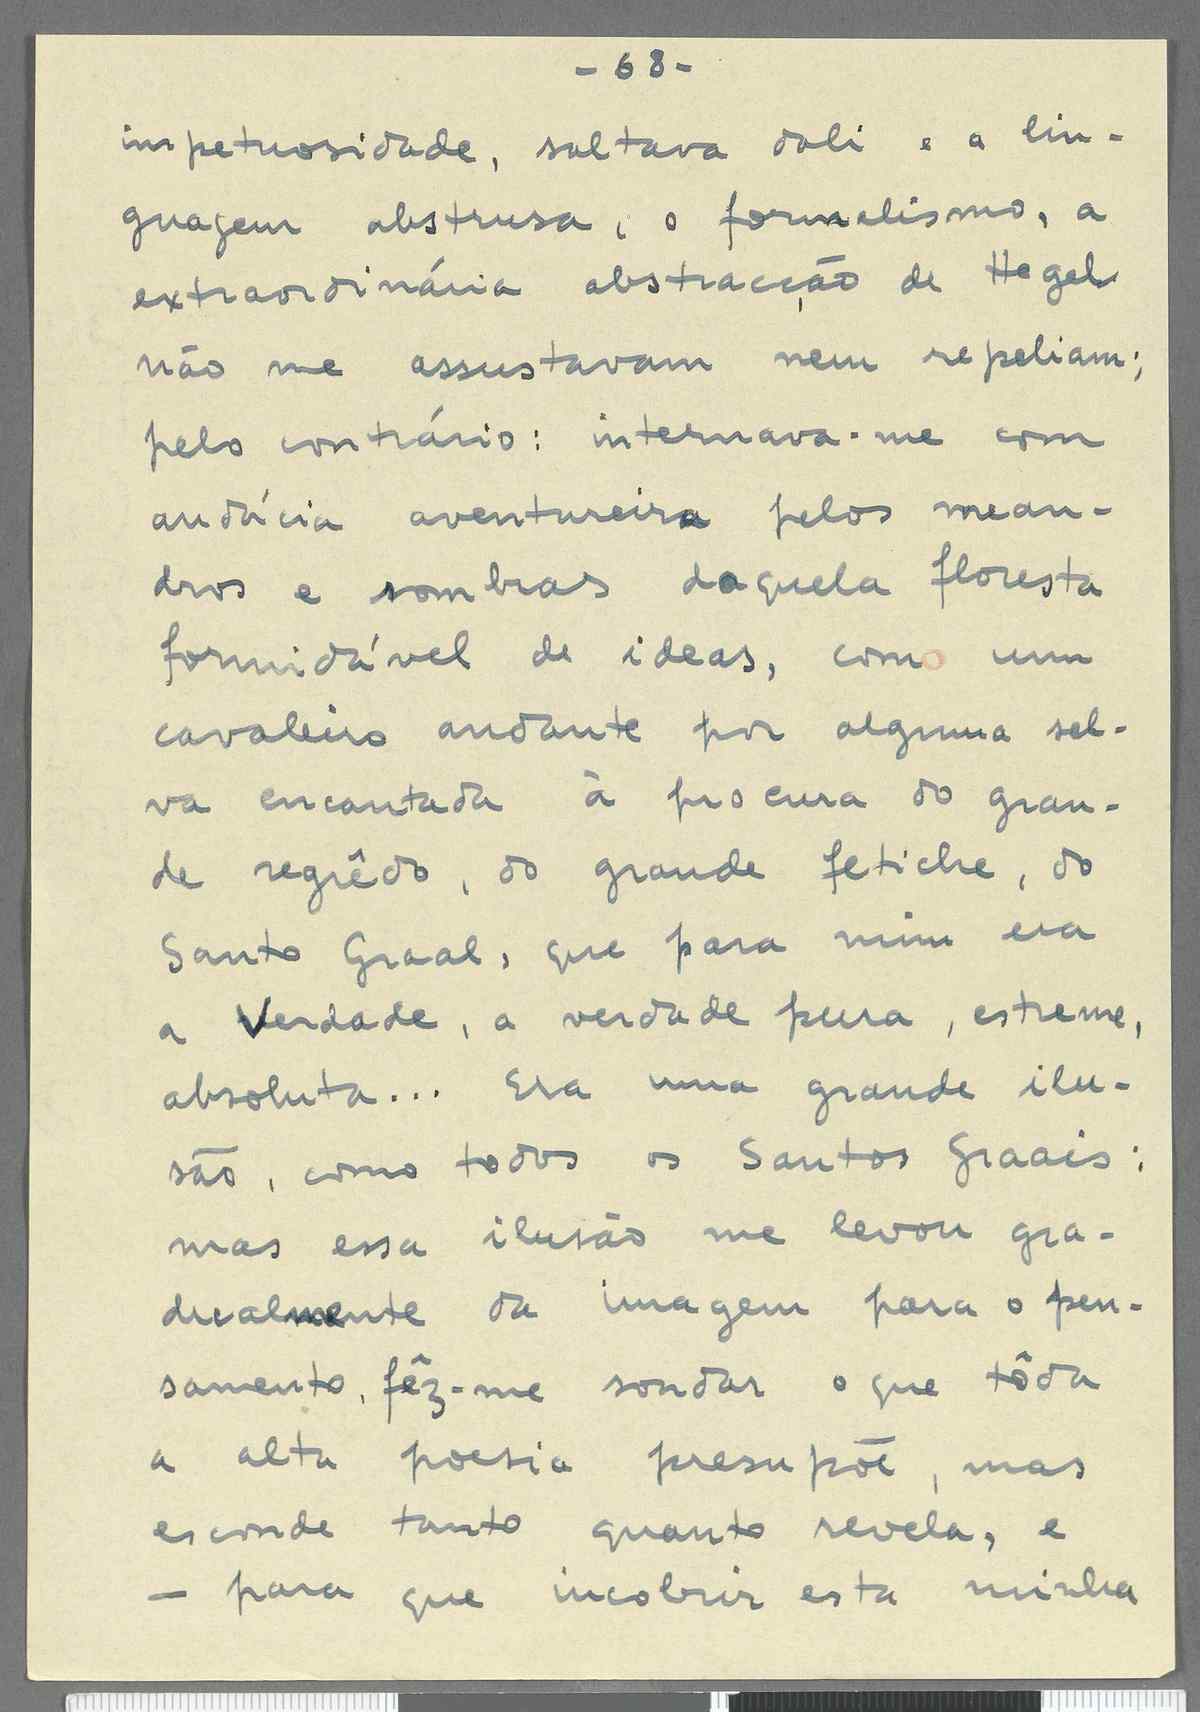 - 68 -
impetuosidade, saltava dali e a lin-
guagem abstrusa, o formalismo, a
extraordinária abstracção de Hegel
não me assustavam nem repeliam;
pelo contrário: internava-me com
audácia aventureira pelos mean-
dros e sombras daquela floresta
formidável de ideas, como um
cavaleiro andante por alguma sel-
va encantada à procura do gran-
de segrêdo, do grande fetiche, do
Santo Graal, que para mim era
a Verdade, a verdade pura, estreme,
absoluta... Era uma grande ilu-
são, como todos os Santos Graais;
mas essa ilusão me levou gra-
dualmente da imagem para o pen-
samento, fêz-me sondar o que tôda
a alta poesia presupõe, mas
esconde tanto quanto revela, e
— para que incobrir esta minha